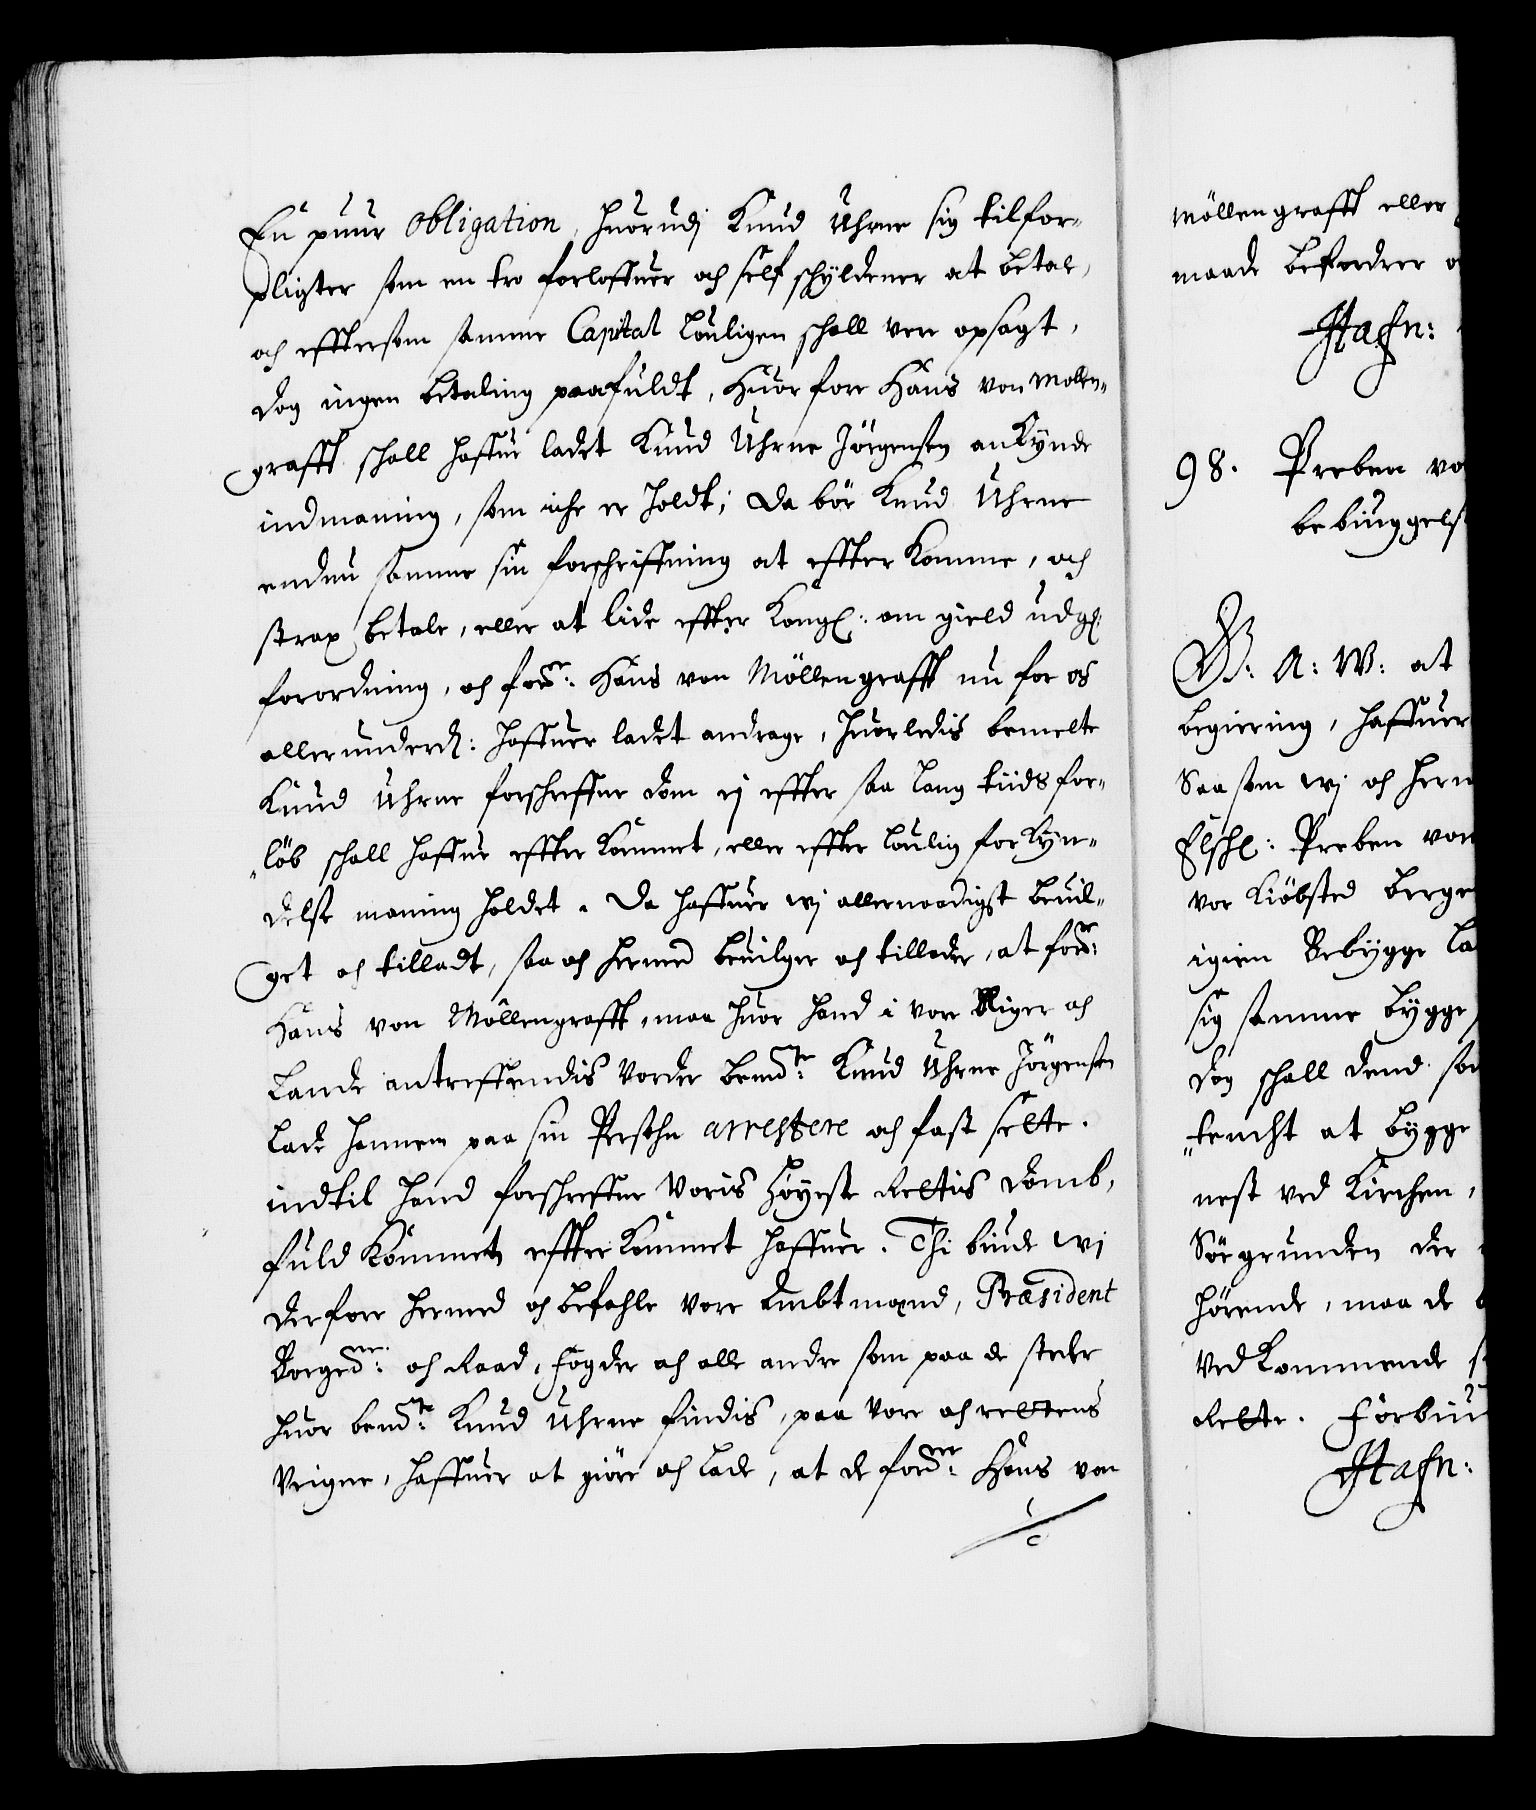 En puur obligation, huorudj Knud Uhrne sig tilfor-
pligter som en tro forloffuer och self schyldener at betale,
och effttersom samme Capital louligen schall vere opsagt,
dog ingen betaling paafuldt, huorfore Hans von Mollen-
grafft schall haffue ladet Knud Uhrne Jörgensen ankynde
indmaning, som iche er holdt; Da bör Knud Uhrne
endnu samme sin forschriffning at effterkomme, och
strax betale, eller at lide effter Kongl: om gield udg:
forordning, och fornr: Hans von Möllengrafft nu for os
allerunderd: haffuer ladet andrage, huorledis bemelte
Knud Uhrne forschreffne dom ej effter saa lang tiids for-
löb schall haffue effterkommet, eller effter loulig forkyn-
delse maning holdet. Da haffuer wj allernaadigst beuil-
get och tilladt, saa och hermed beuilger och tillader, at fornr:
Hans von Möllengrafft, maa huor hand i vore Riger och
Lande antreffendis vorder bemdte: Knud Uhrne Jörgensen
lade hannem paa sin Persohn arrestere och fast sette.
indtil hand forschreffne Voris Höyeste Rettis domb,
fuldkommen effterkommet haffuer. Thi biude wj
derfore hermed och befahle vore Ambtmænd, Præsident
Borgemr: och Raad, fogder och alle andre som paa de steder
huor bemdte: Knud Uhrne findis, paa vore och rettens
Veigne, haffuer at giöre och lade, at de fornr: Hans von
Möllengrafft eller
maade befordrer
Hafn:
98. Preben von
bebiuggelse
G: A: W: at
begiering, haffuer
Saasom wj och herm
Elschl: Preben von
vor Kiöbsted berge
igien Bebygge la
sig samme bygge
dog schall dend som
tencht at bygge
nest ved Kirchen,
Sör grunden der
hörende, maa de
Vedkommende
Rette. Forbiu
Hafn: